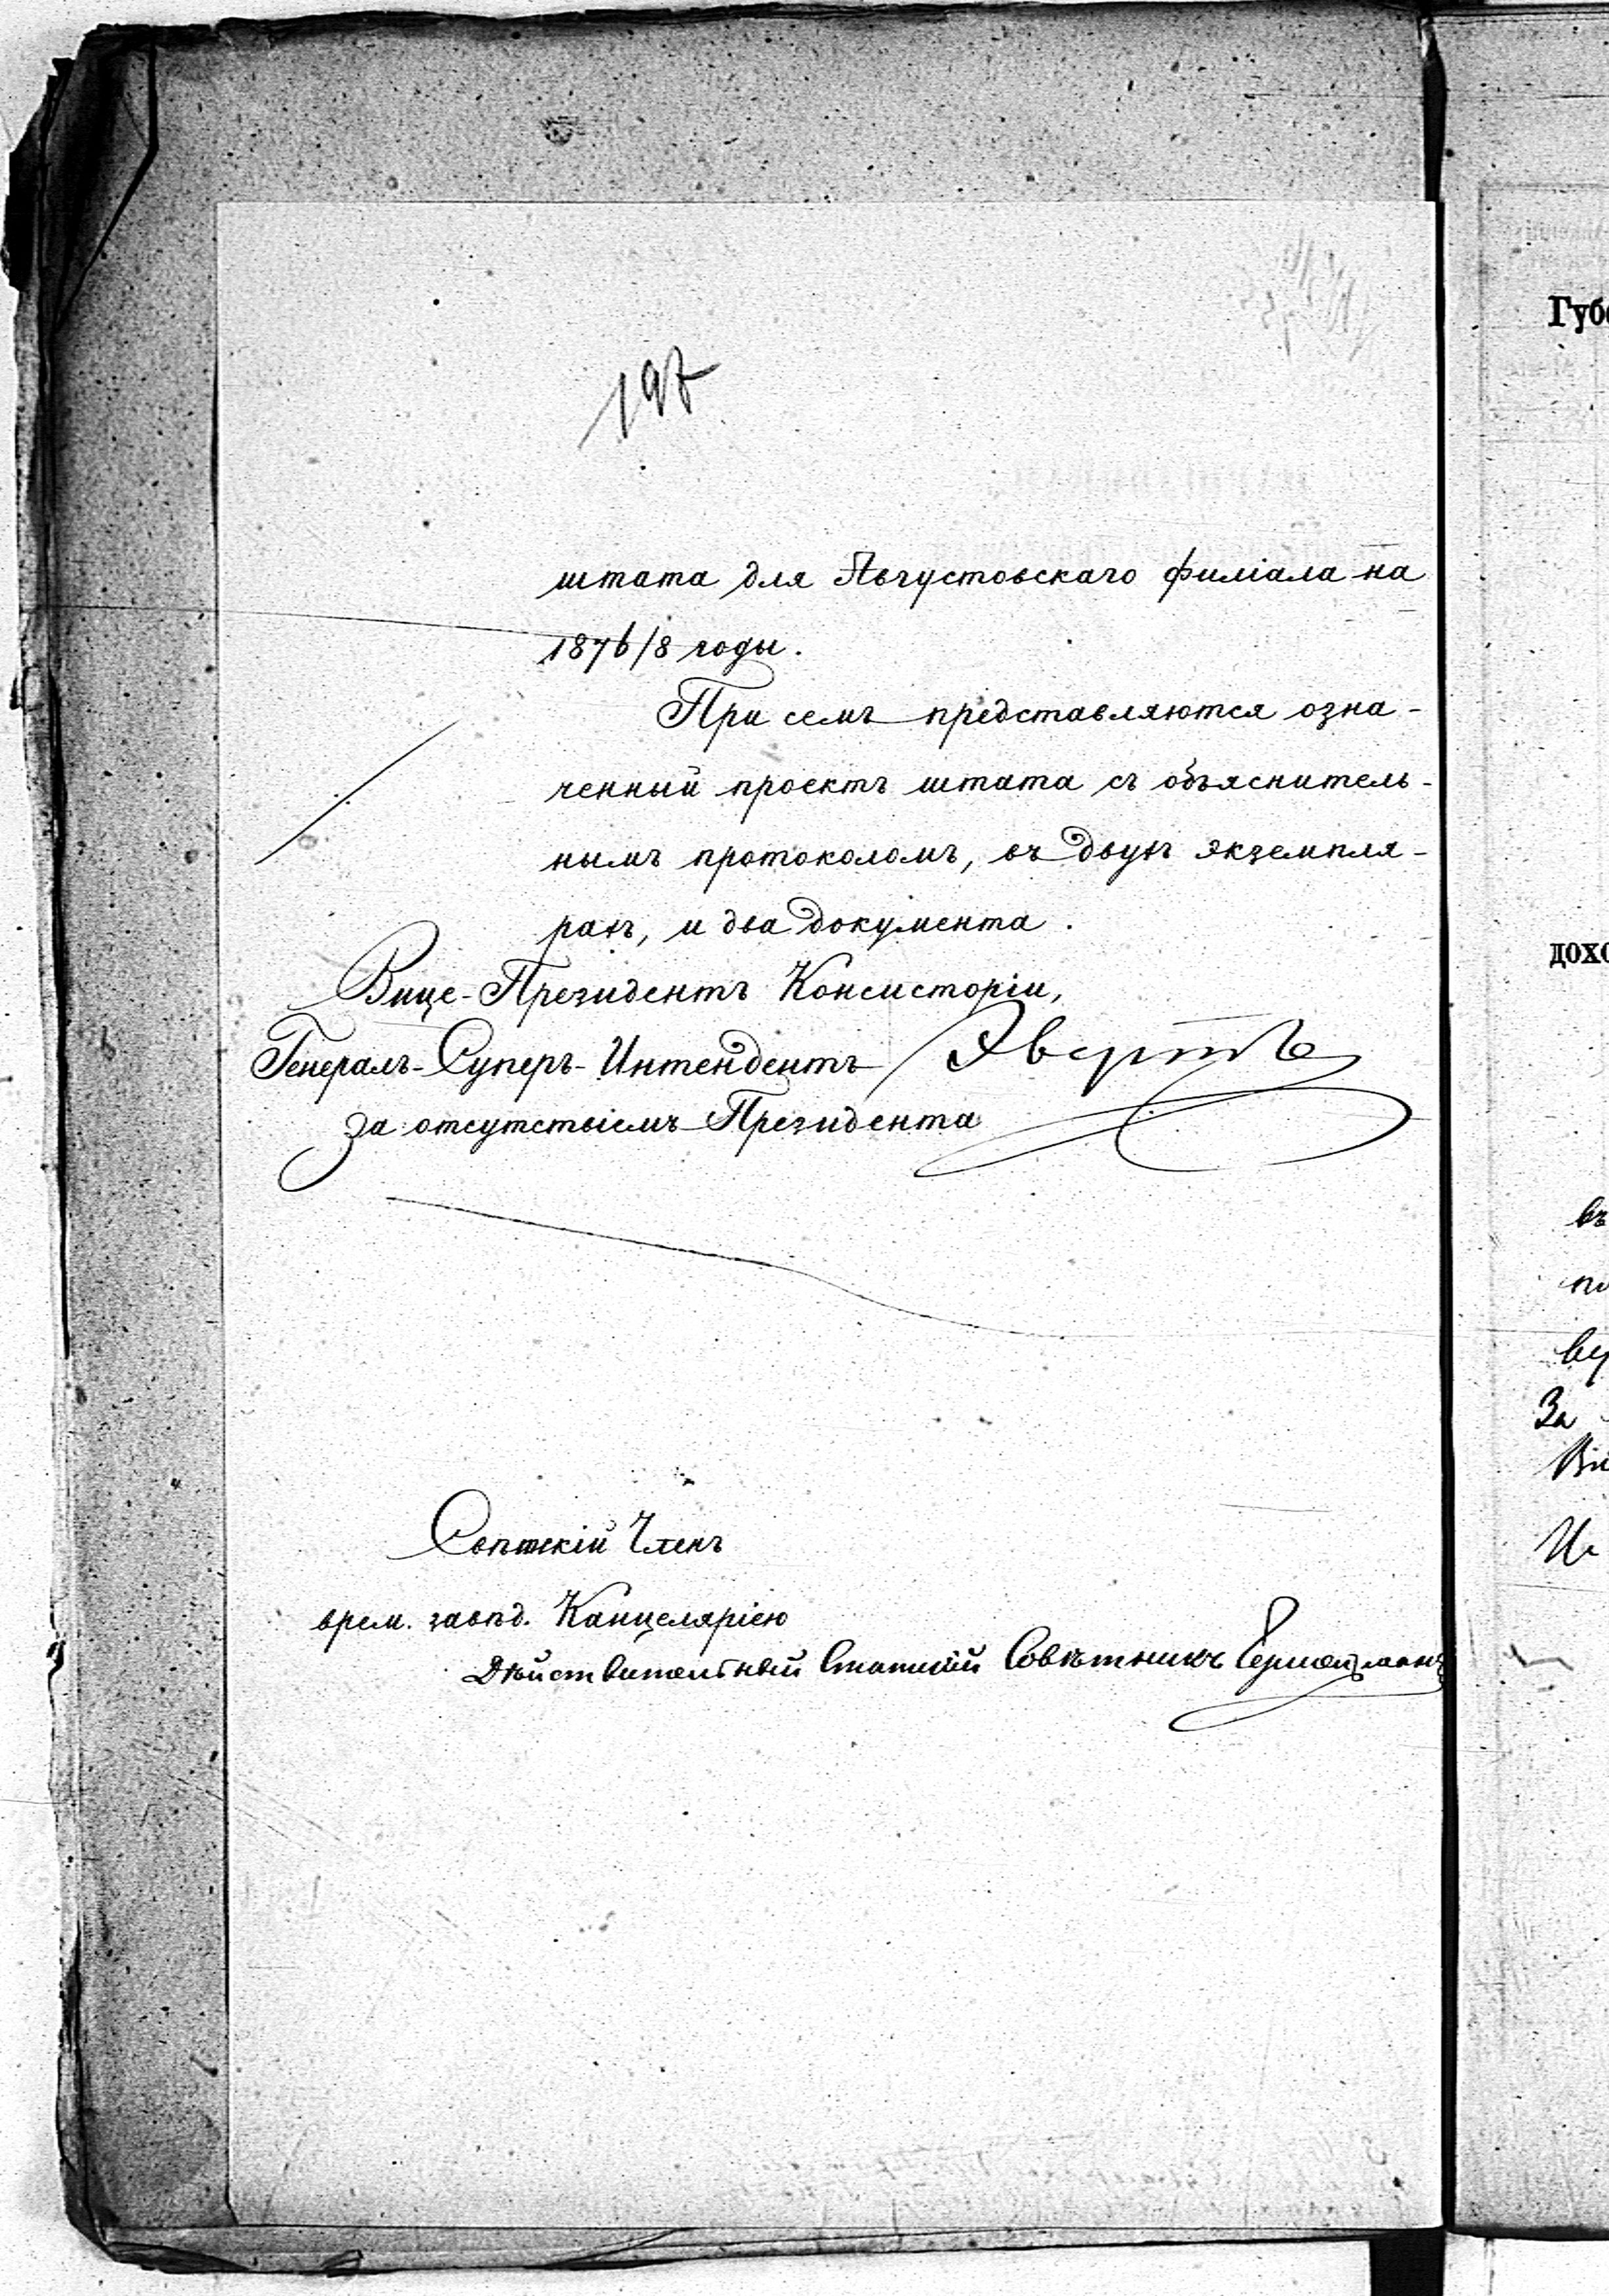 197
штата для Августовскаго филіала на
1876/8 годы.
При семъ представляются озна-
ченный проектъ штата съ объяснитель-
нымъ протоколомъ, въ двухъ экземпля-
рахъ, и два документа.
Вице-Президентъ Консисторіи,
Генералъ-Суперъ-Интендентъ Эвертъ
за отсутствіемъ Президента
Свѣтскій Членъ
врем. завѣд. Канцеляріею
Дѣйствительный Статскій Совѣтникъ
Губе
дохо
въ
За